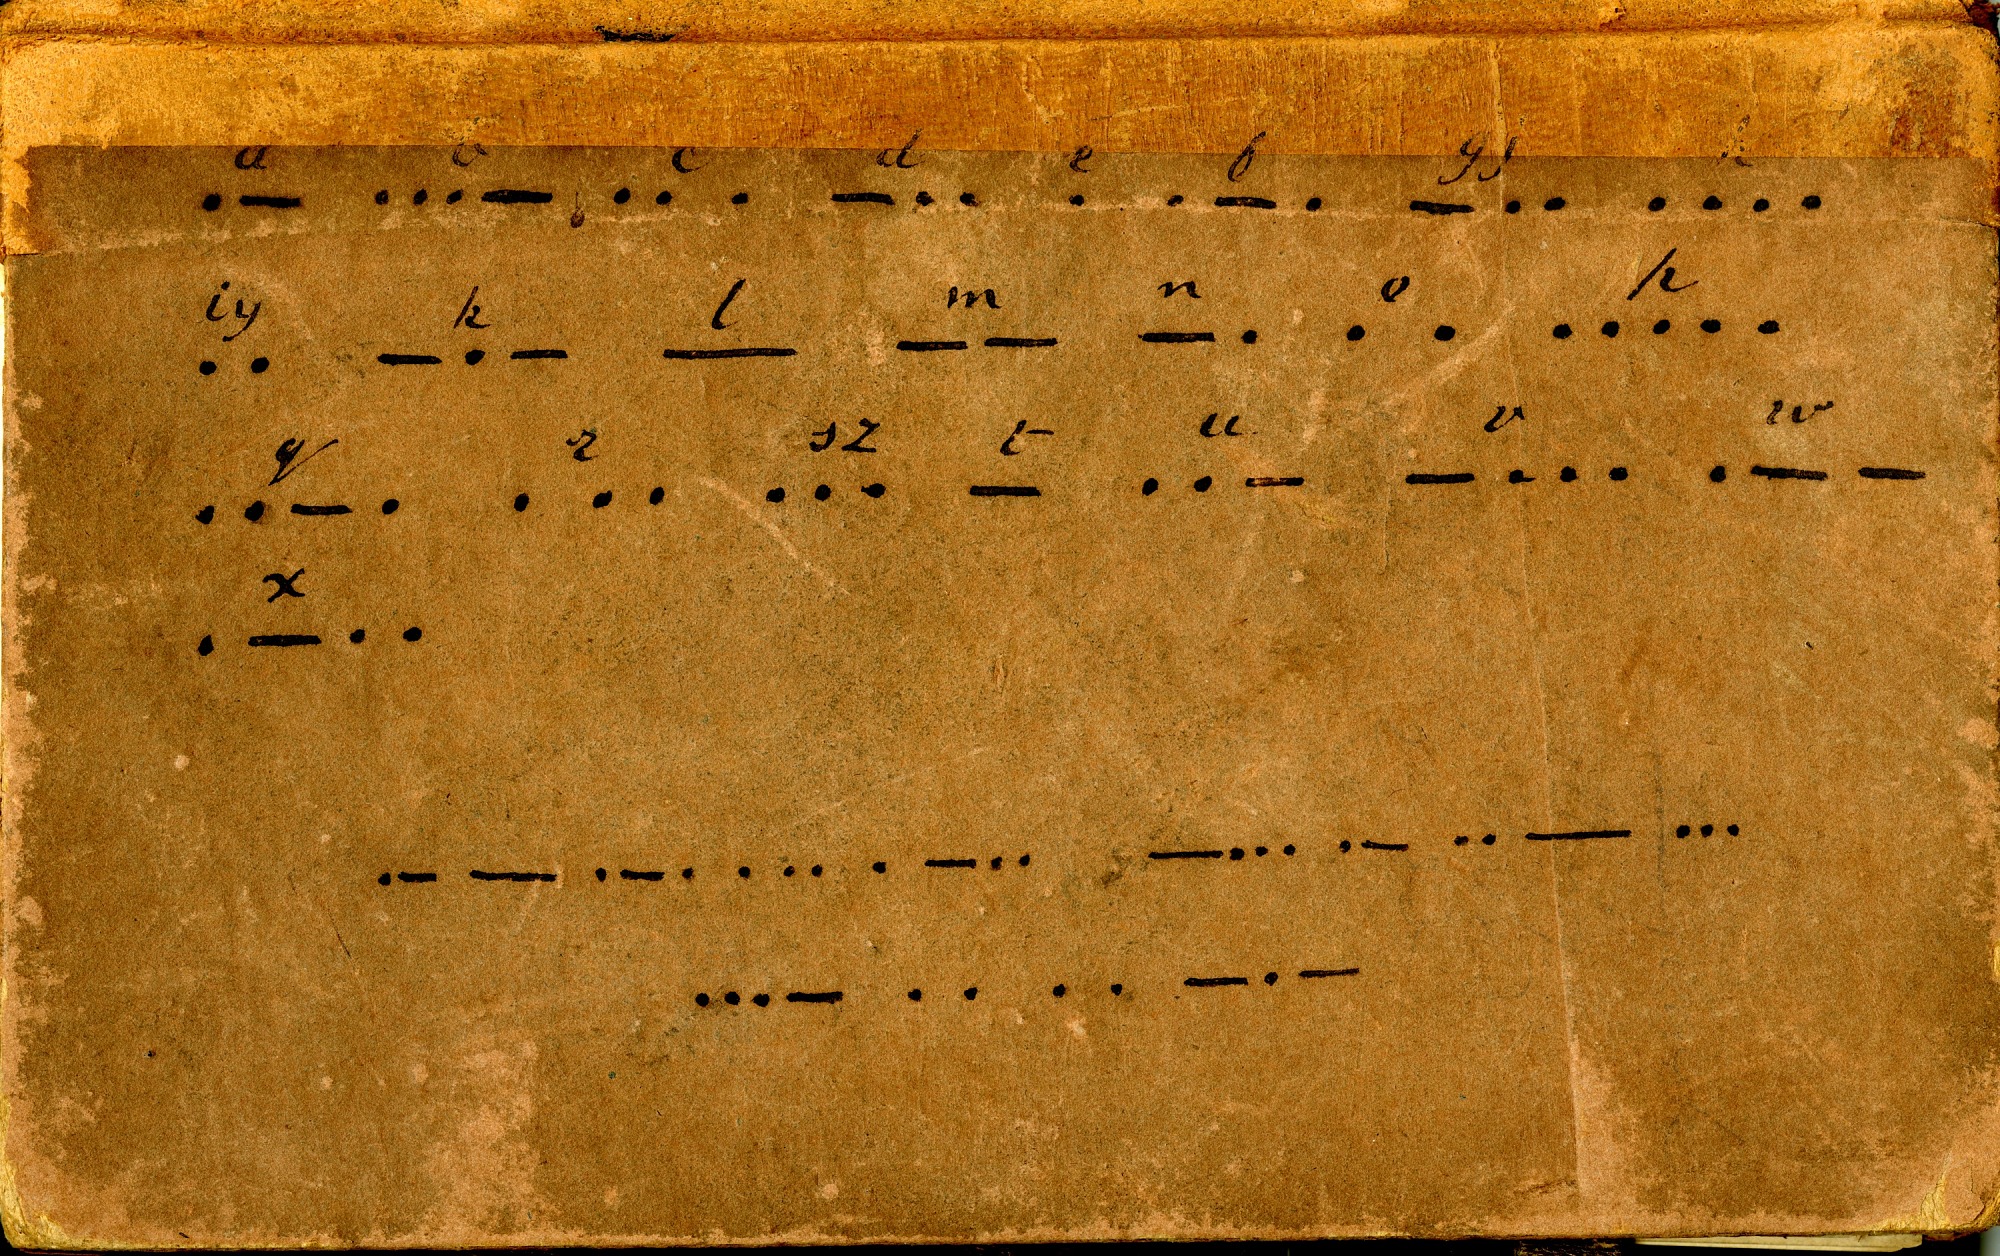 a b c d e f gj
·— ···— ·· · —·· · ·—· —·· ····
iy k l m n o p
·· —·— —— — — —· · · ·····
q r sz t u v w
··—· · ·· ··· — ··— —··· ·— —
x
·—··
·— —— ·—· · ·· · —·· —··· ·— ·· —— ···
···— · · · · —·—